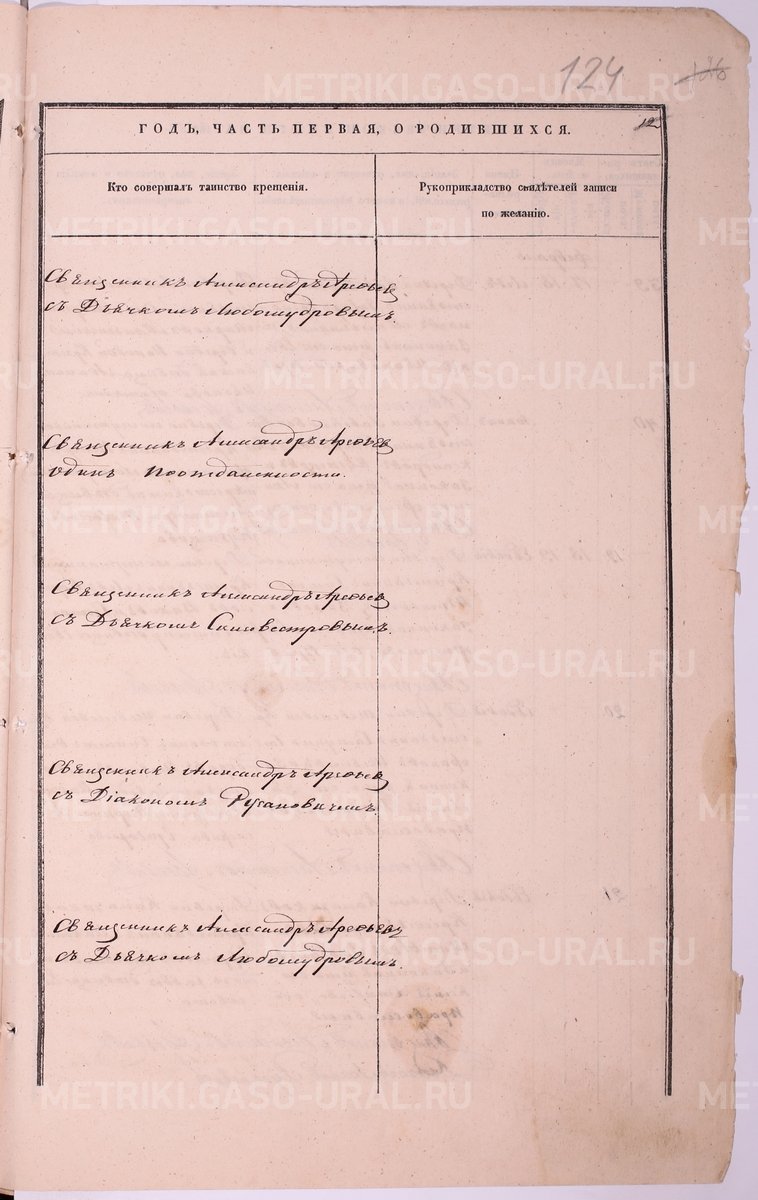 124
126
ГОДЪ, ЧАСТЬ ПЕРВАЯ, О РОДИВШИХСЯ.
12
Кто совершалъ таинство крещенія.
Рукоприкладство свидѣтелей записи
по желанію.
Священникъ Александръ Арефьев
съ Дьячкомъ Любомудровымъ.
Священникъ Александръ Арефьев
одинъ
Священникъ Александръ Арефьев
съ Дьячкомъ Силивестровымъ.
Священникъ Александръ Арефьев
съ Діакономъ Русановичемъ.
Священникъ Александръ Арефьев
съ Дьячкомъ Любомудровымъ.
METRIKI.GASO-URAL.RU